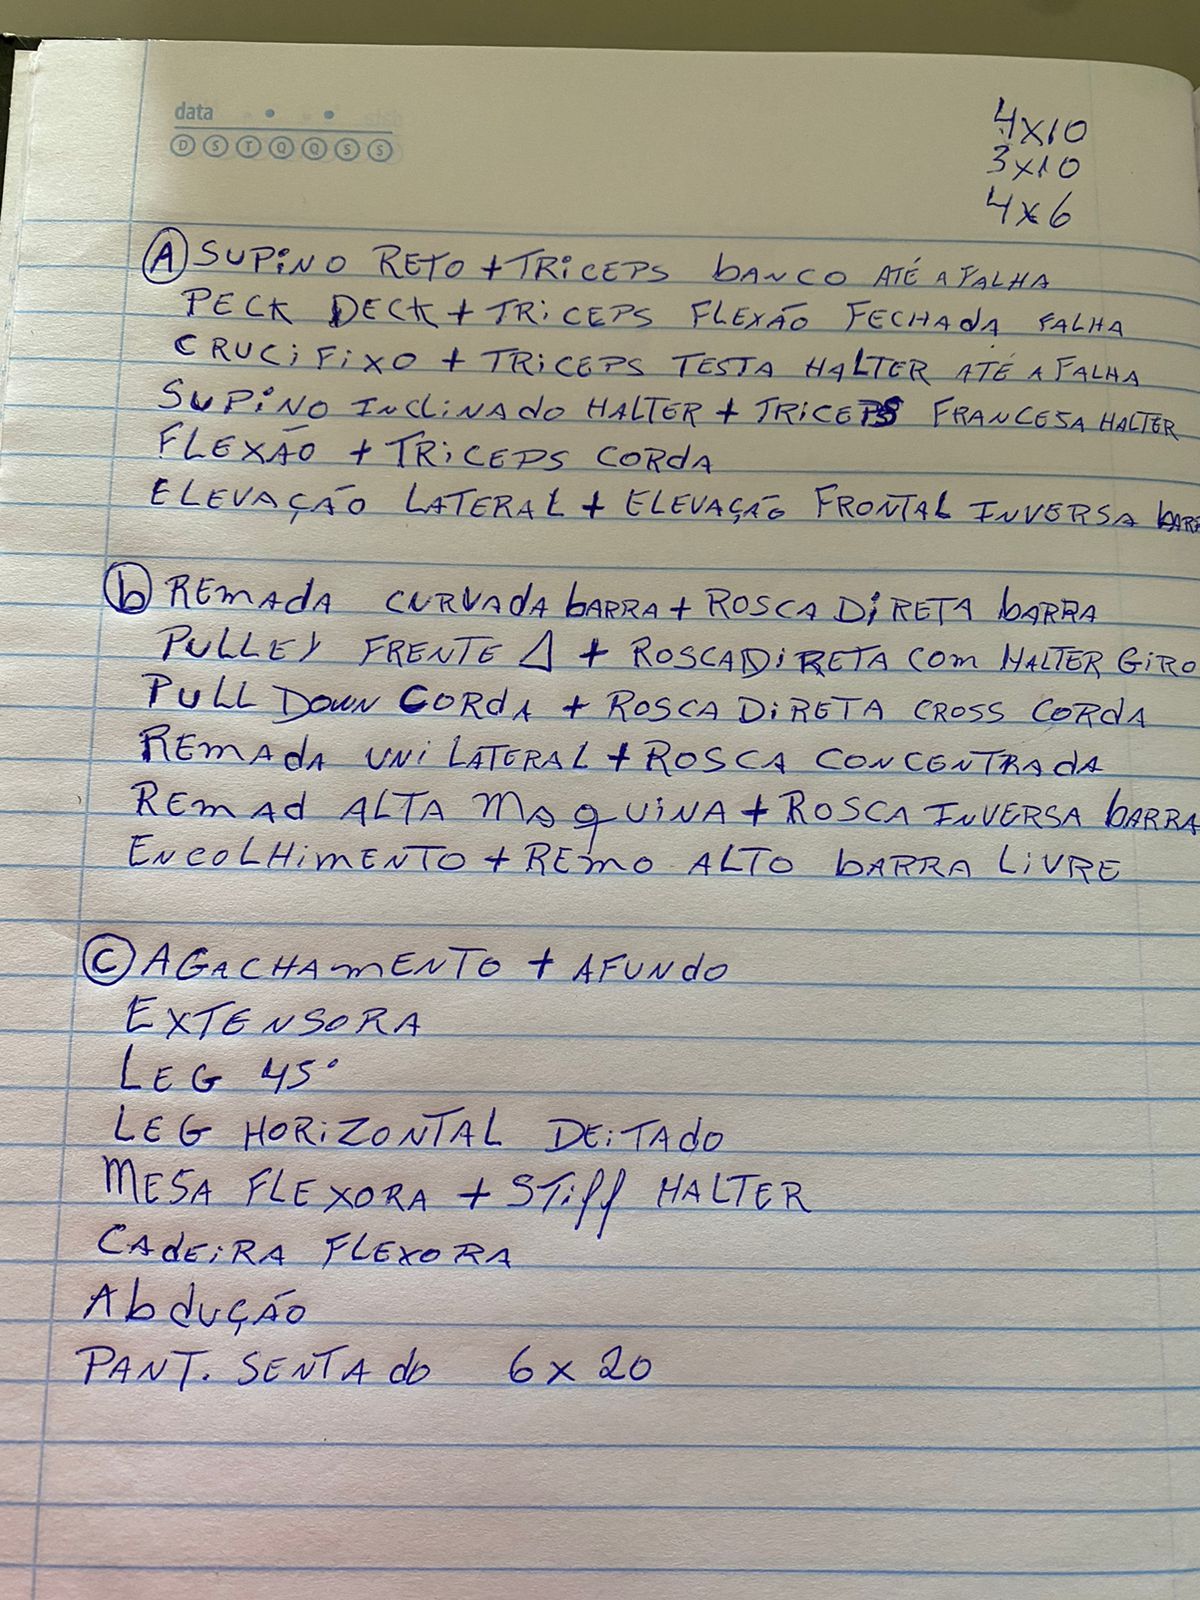 data
D S T Q Q S S
4x10
3x10
4x6
A SUPINO RETO + TRICEPS BANCO ATÉ A FALHA
PECK DECK + TRICEPS FLEXÃO FECHADA FALHA
CRUCIFIXO + TRICEPS TESTA HALTER ATÉ A FALHA
SUPINO INCLINADO HALTER + TRICEPS FRANCESA HALTER
FLEXÃO + TRICEPS CORDA
ELEVAÇÃO LATERAL + ELEVAÇÃO FRONTAL INVERSA
b REMADA CURVADA BARRA + ROSCA DIRETA BARRA
PULLEY FRENTE Δ + ROSCA DIRETA COM HALTER GIRO
PULL DOWN CORDA + ROSCA DIRETA CROSS CORDA
REMADA UNILATERAL + ROSCA CONCENTRADA
REMAD ALTA MAQUINA + ROSCA INVERSA BARRA
ENCOLHIMENTO + REMO ALTO BARRA LIVRE
C AGACHAMENTO + AFUNDO
EXTENSORA
LEG 45°
LEG HORIZONTAL DEITADO
MESA FLEXORA + STIFF HALTER
CADEIRA FLEXORA
ABDUÇÃO
PANT. SENTADO 6 x 20